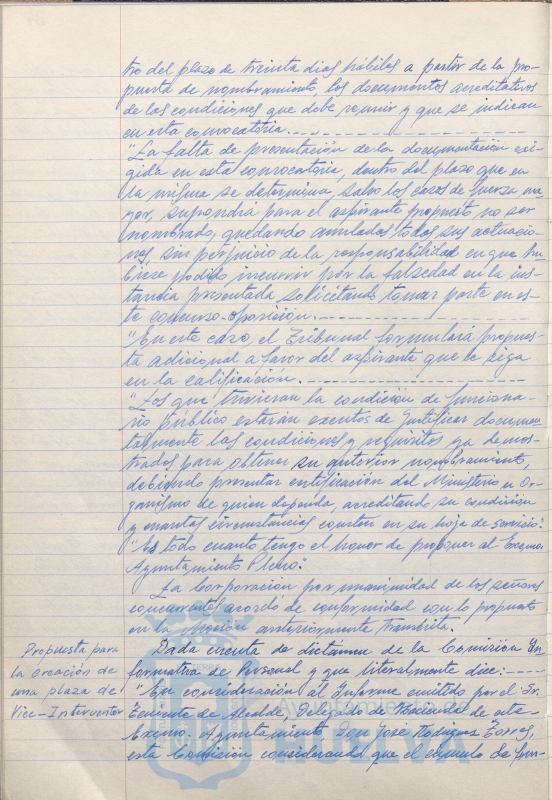 tro del plazo de treinta dias hábiles a partir de la pro-
puesta de nombramiento, los documentos acreditativos
de las condiciones que debe reunir y que se indican
en esta convocatoria.
"La falta de presentación de la documentación exi-
gida en esta convocatoria, dentro del plazo que en
la misma se determina, salvo los casos de fuerza ma-
yor, supondrá para el aspirante propuesto no ser
nombrado, quedando anuladas todas sus actuacio-
nes sin perjuicio de la responsabilidad en que hu-
biese podido incurrir por la falsedad en la ins-
tancia presentada solicitando tomar parte en es-
te concurso-oposición.
"En este caso, el Tribunal formulará propues-
ta adicional a favor del aspirante que le siga
en la calificación.
"Los que tuvieran la condición de funciona-
rio público estarán exentos de justificar documen-
talmente las condiciones y requisitos ya demos-
trados para obtener su anterior nombramiento,
debiendo presentar certificación del Ministerio u Or-
ganismo de quien dependa, acreditando su condición
y cuantas circunstancias consten en su hoja de servicio."
"Es todo cuanto tengo el honor de proponer al Excmo.
Ayuntamiento Pleno."
La Corporación por unanimidad de los señores
concurrentes acordó de conformidad con lo propuesto
en la Moción anteriormente transcrita.
Propuesta para
la creación de
una plaza de
Vice-Interventor
Dada cuenta de dictámen de la Comisión In-
formativa de Personal y que literalmente dice:
"En consideración al Informe emitido por el Sr.
Teniente de Alcalde, Delegado de Hacienda de este
Excmo. Ayuntamiento, Don José Rodríguez Torres,
esta Comisión considerando que el cúmulo de fun-
Ayuntamiento